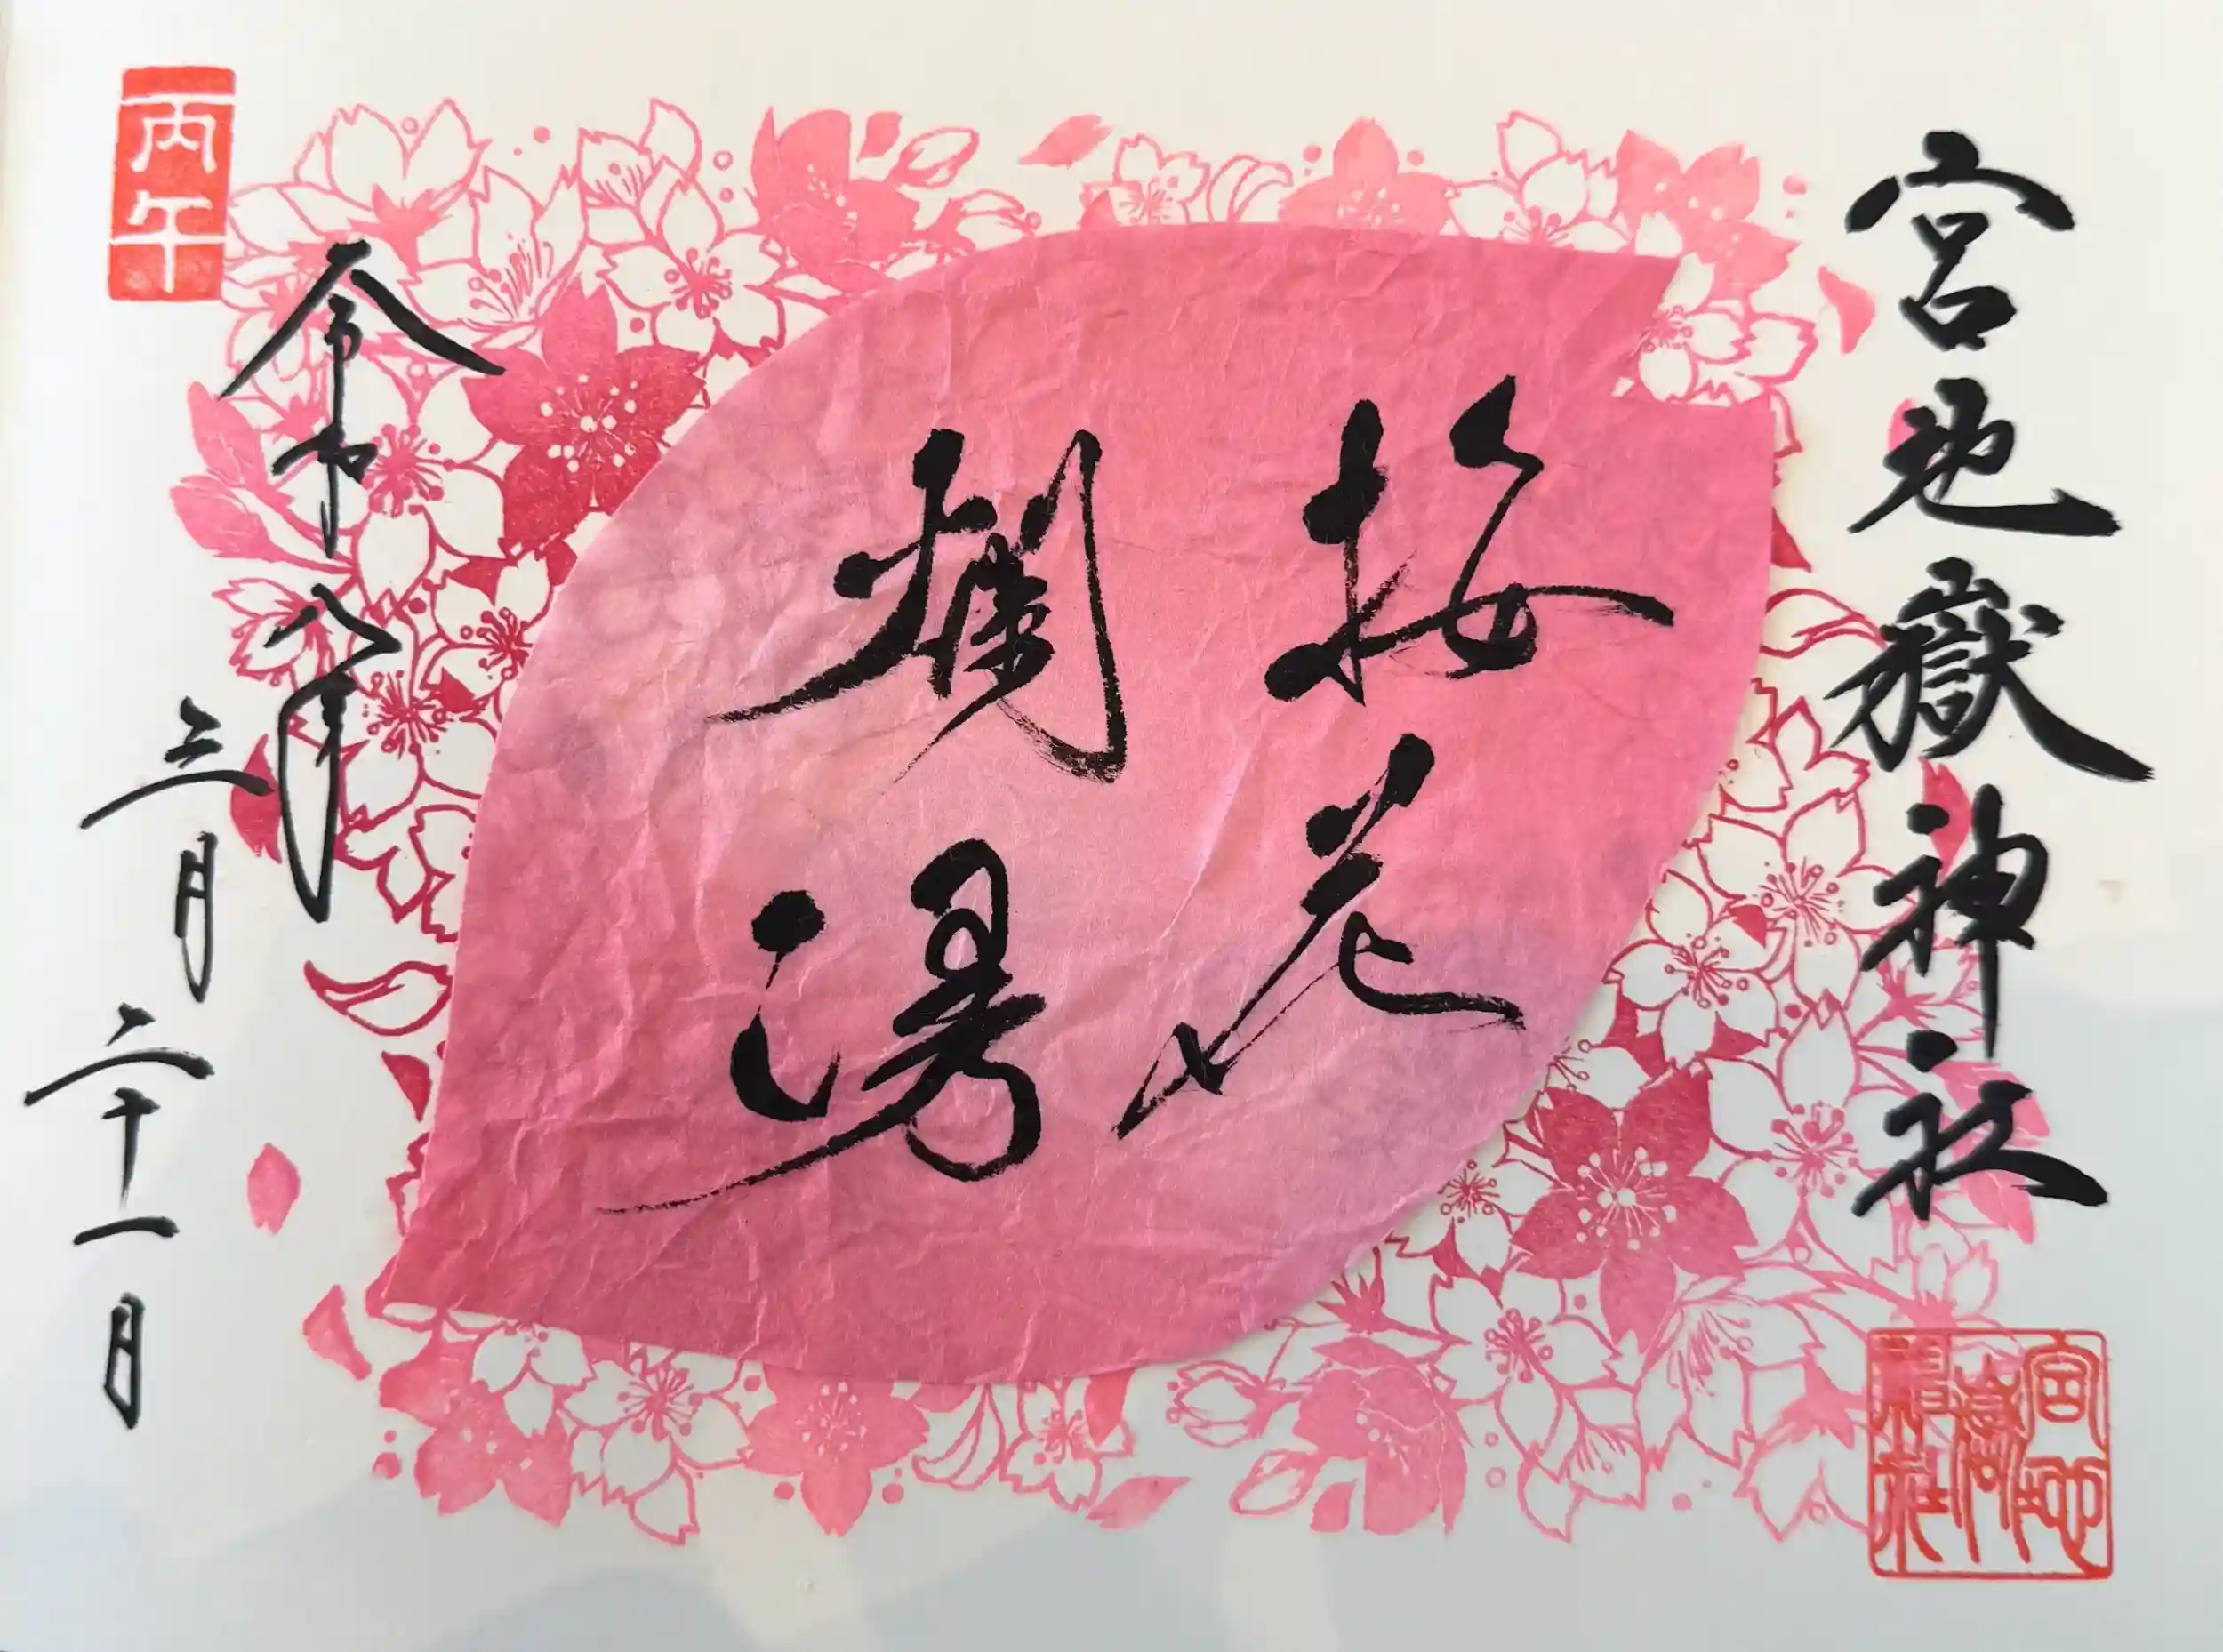 宮地嶽神社
桜花
爛漫
令和八年
三月二十一日
丙午
宮地
嶽
神社